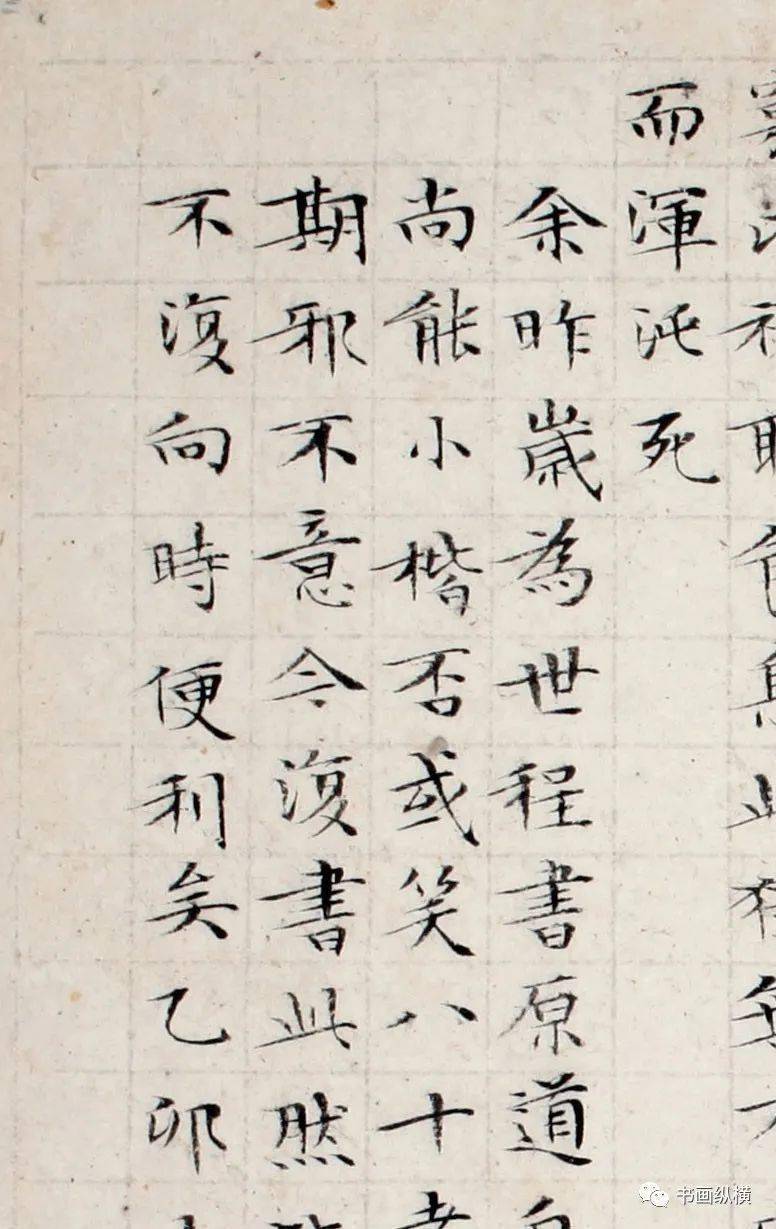 而渾沌死
余昨歲為世程書原道
尚能小楷否或笑八十
期邪不意今復書此然
不復向時便利矣乙卯
书画纵横